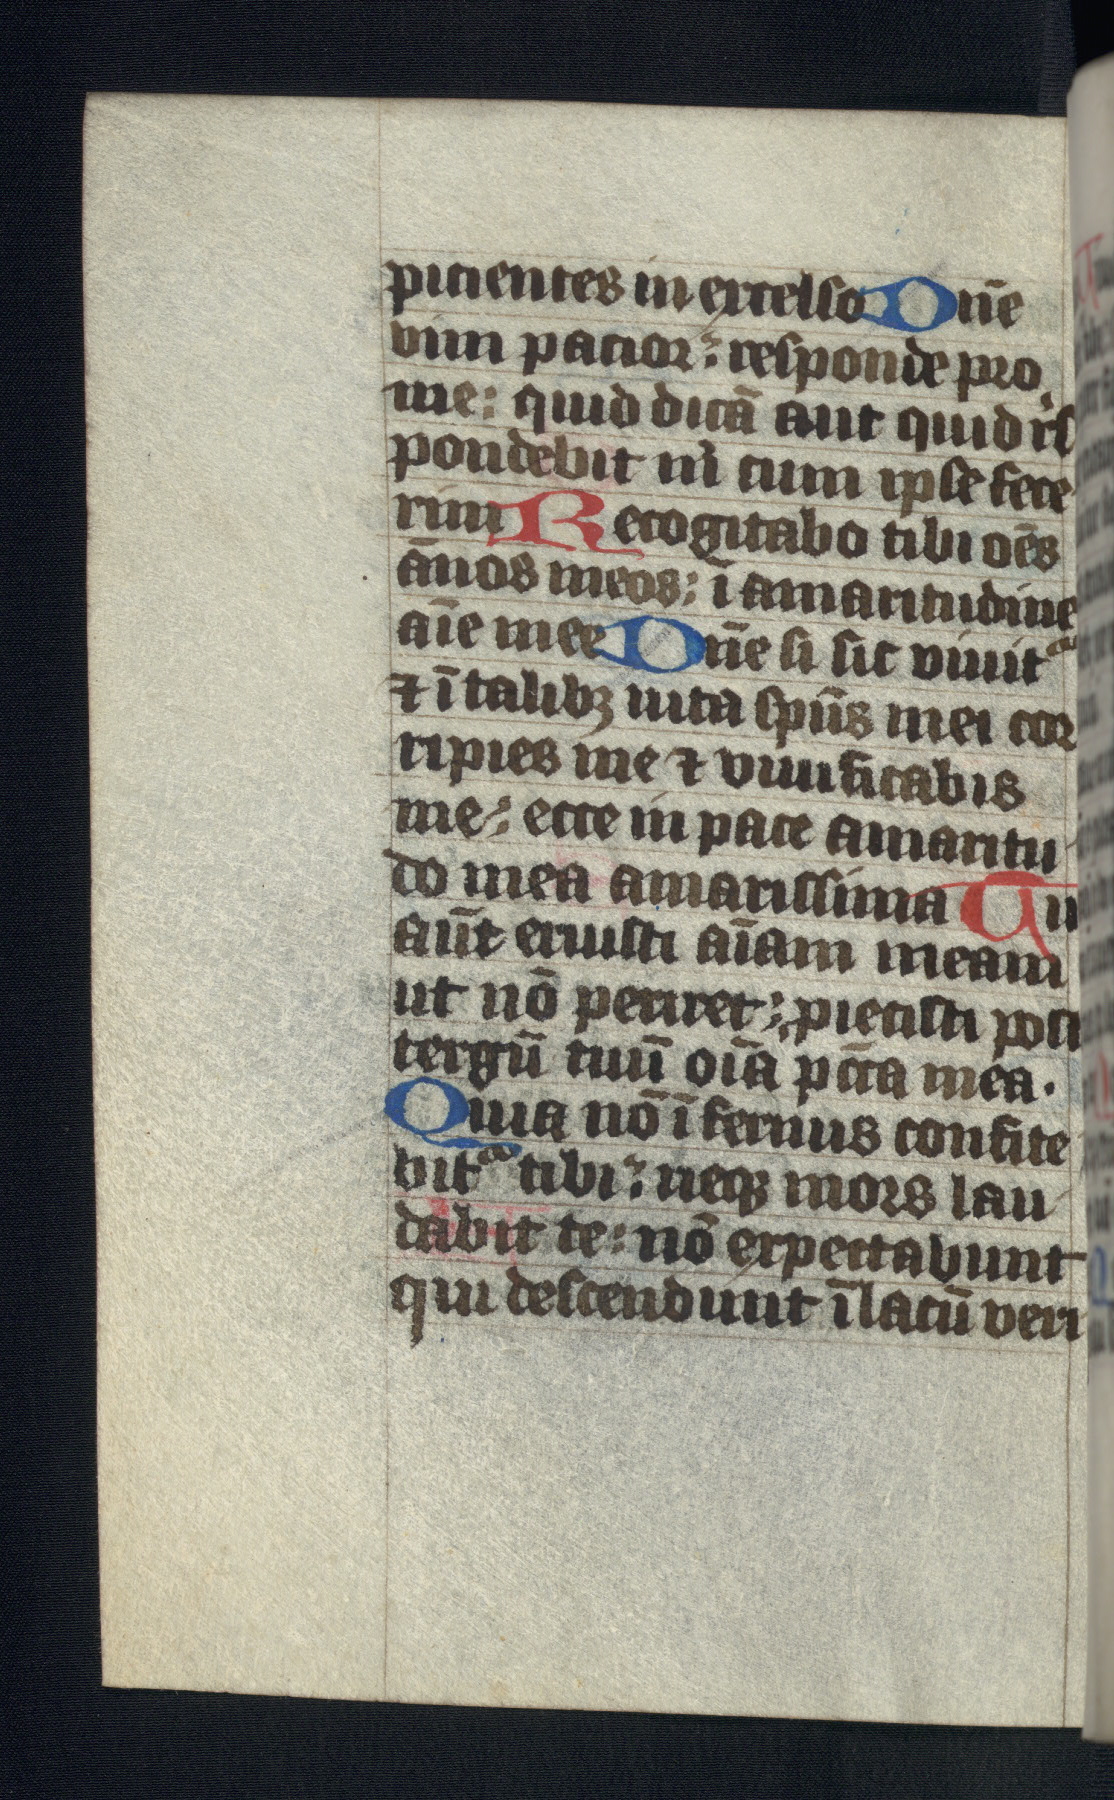 picientes in excelso Dn̄e
vim pacior: responde pro
me: quid dicā aut quid rl̓
pondebit m̄ cum ipse fece
rim Recogitabo tibi oēs
ānos meos: ī amaritudine
aīe mee Dn̄e si sic viuitᵃ
⁊ ī talibꝫ uita sp̄us mei cor
ripies me ⁊ viuificabis
me: ecce in pace amaritu
do mea amarissima Tu
aūt eruisti aīam meam
ut nō periret: piecisti post
tergū tuū oīa pcc̄a mea.
Quia nō īfernus confite
bitᵃ tibi: neqꝫ mors lau
dabit te: nō expectabunt
qui descendunt ī lacū veri